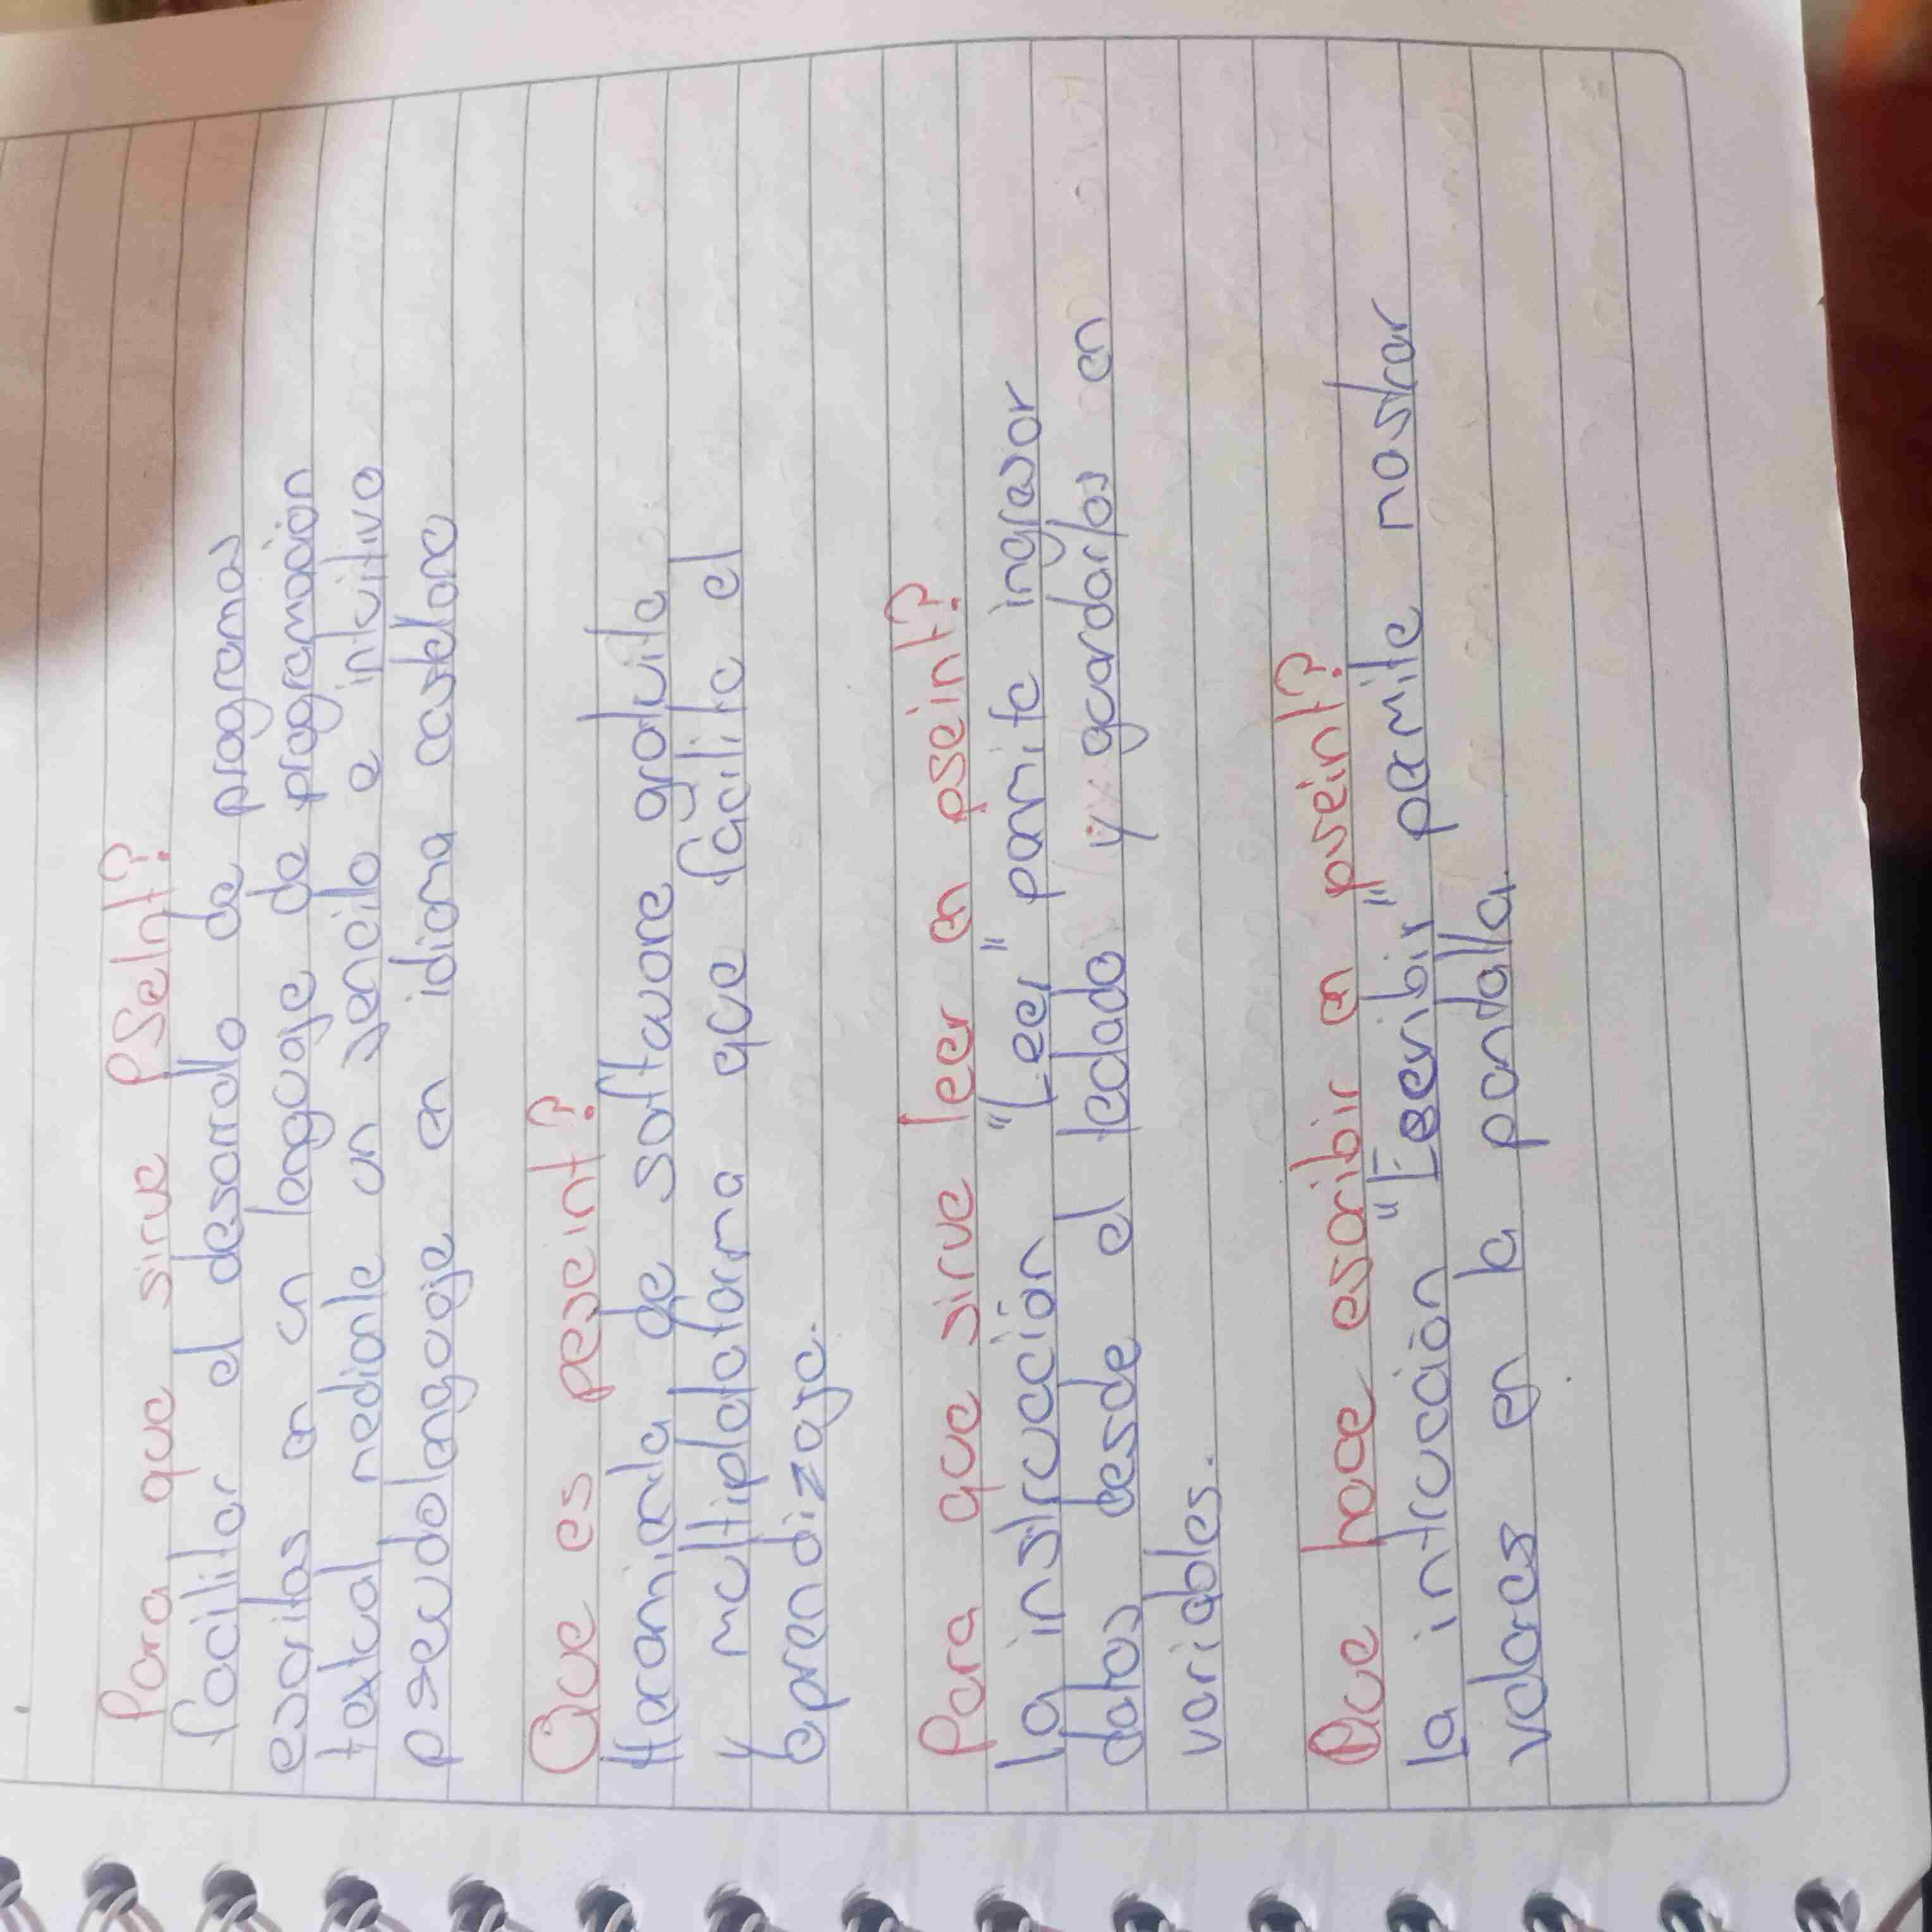 Para que sirve PSeInt?
facilitar el desarrollo de programas
escritos en un lenguaje de programación
textual mediante un sencillo e intuitivo
pseudolenguaje en idioma castellano
Que es peseint?
Herramienta de software gratuita
y multiplataforma que facilita el
aprendizaje.
Para que sirve leer en pseint?
la instrucción "Leer" permite ingresar
datos desde el teclado y guardarlos en
variables.
Que hace escribir en pseint?
la intrucción "Escribir" permite mostrar
valores en la pantalla.